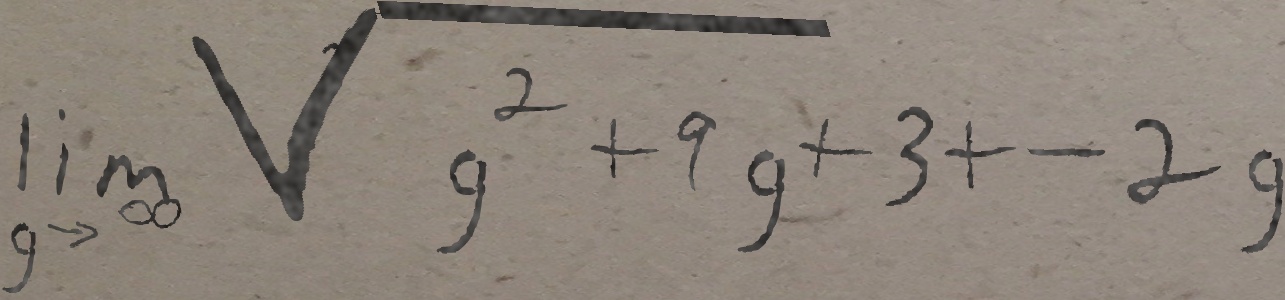 \lim_{g \to \infty} \sqrt{g^2 + 9g + 3} + -2g